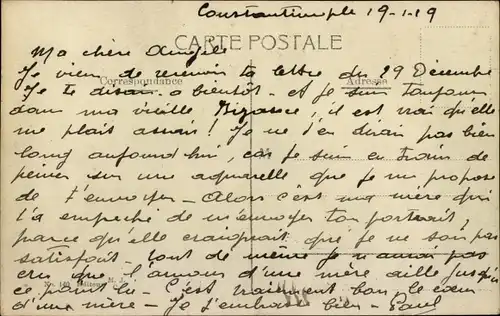 Constantinople 19-1-19
CARTE POSTALE
Ma chère Angèle
Correspondance Adresse
Je viens de recevoir ta lettre du 29 Décembre
Je te disais à bientôt - et je suis toujours
dans ma vieille Bizance, il est vrai qu'elle
me plait assais! Je ne t'en dirai pas bien
long aujourd'hui, car je suis en train de
peiner sur une aquarelle que je me propose
de t'envoyer - Alors c'est ma mère qui
t'a empeché de m'envoyer ton portrait,
parce qu'elle craignait que je ne sois pas
satisfait - tout de même je n'aurais pas
cru que l'amour d'une mère aille jusqu'à
ce point là - C'est vraiment bon le cœur
d'une mère - Je t'embrasse bien - Paul
No. 140 Editeur